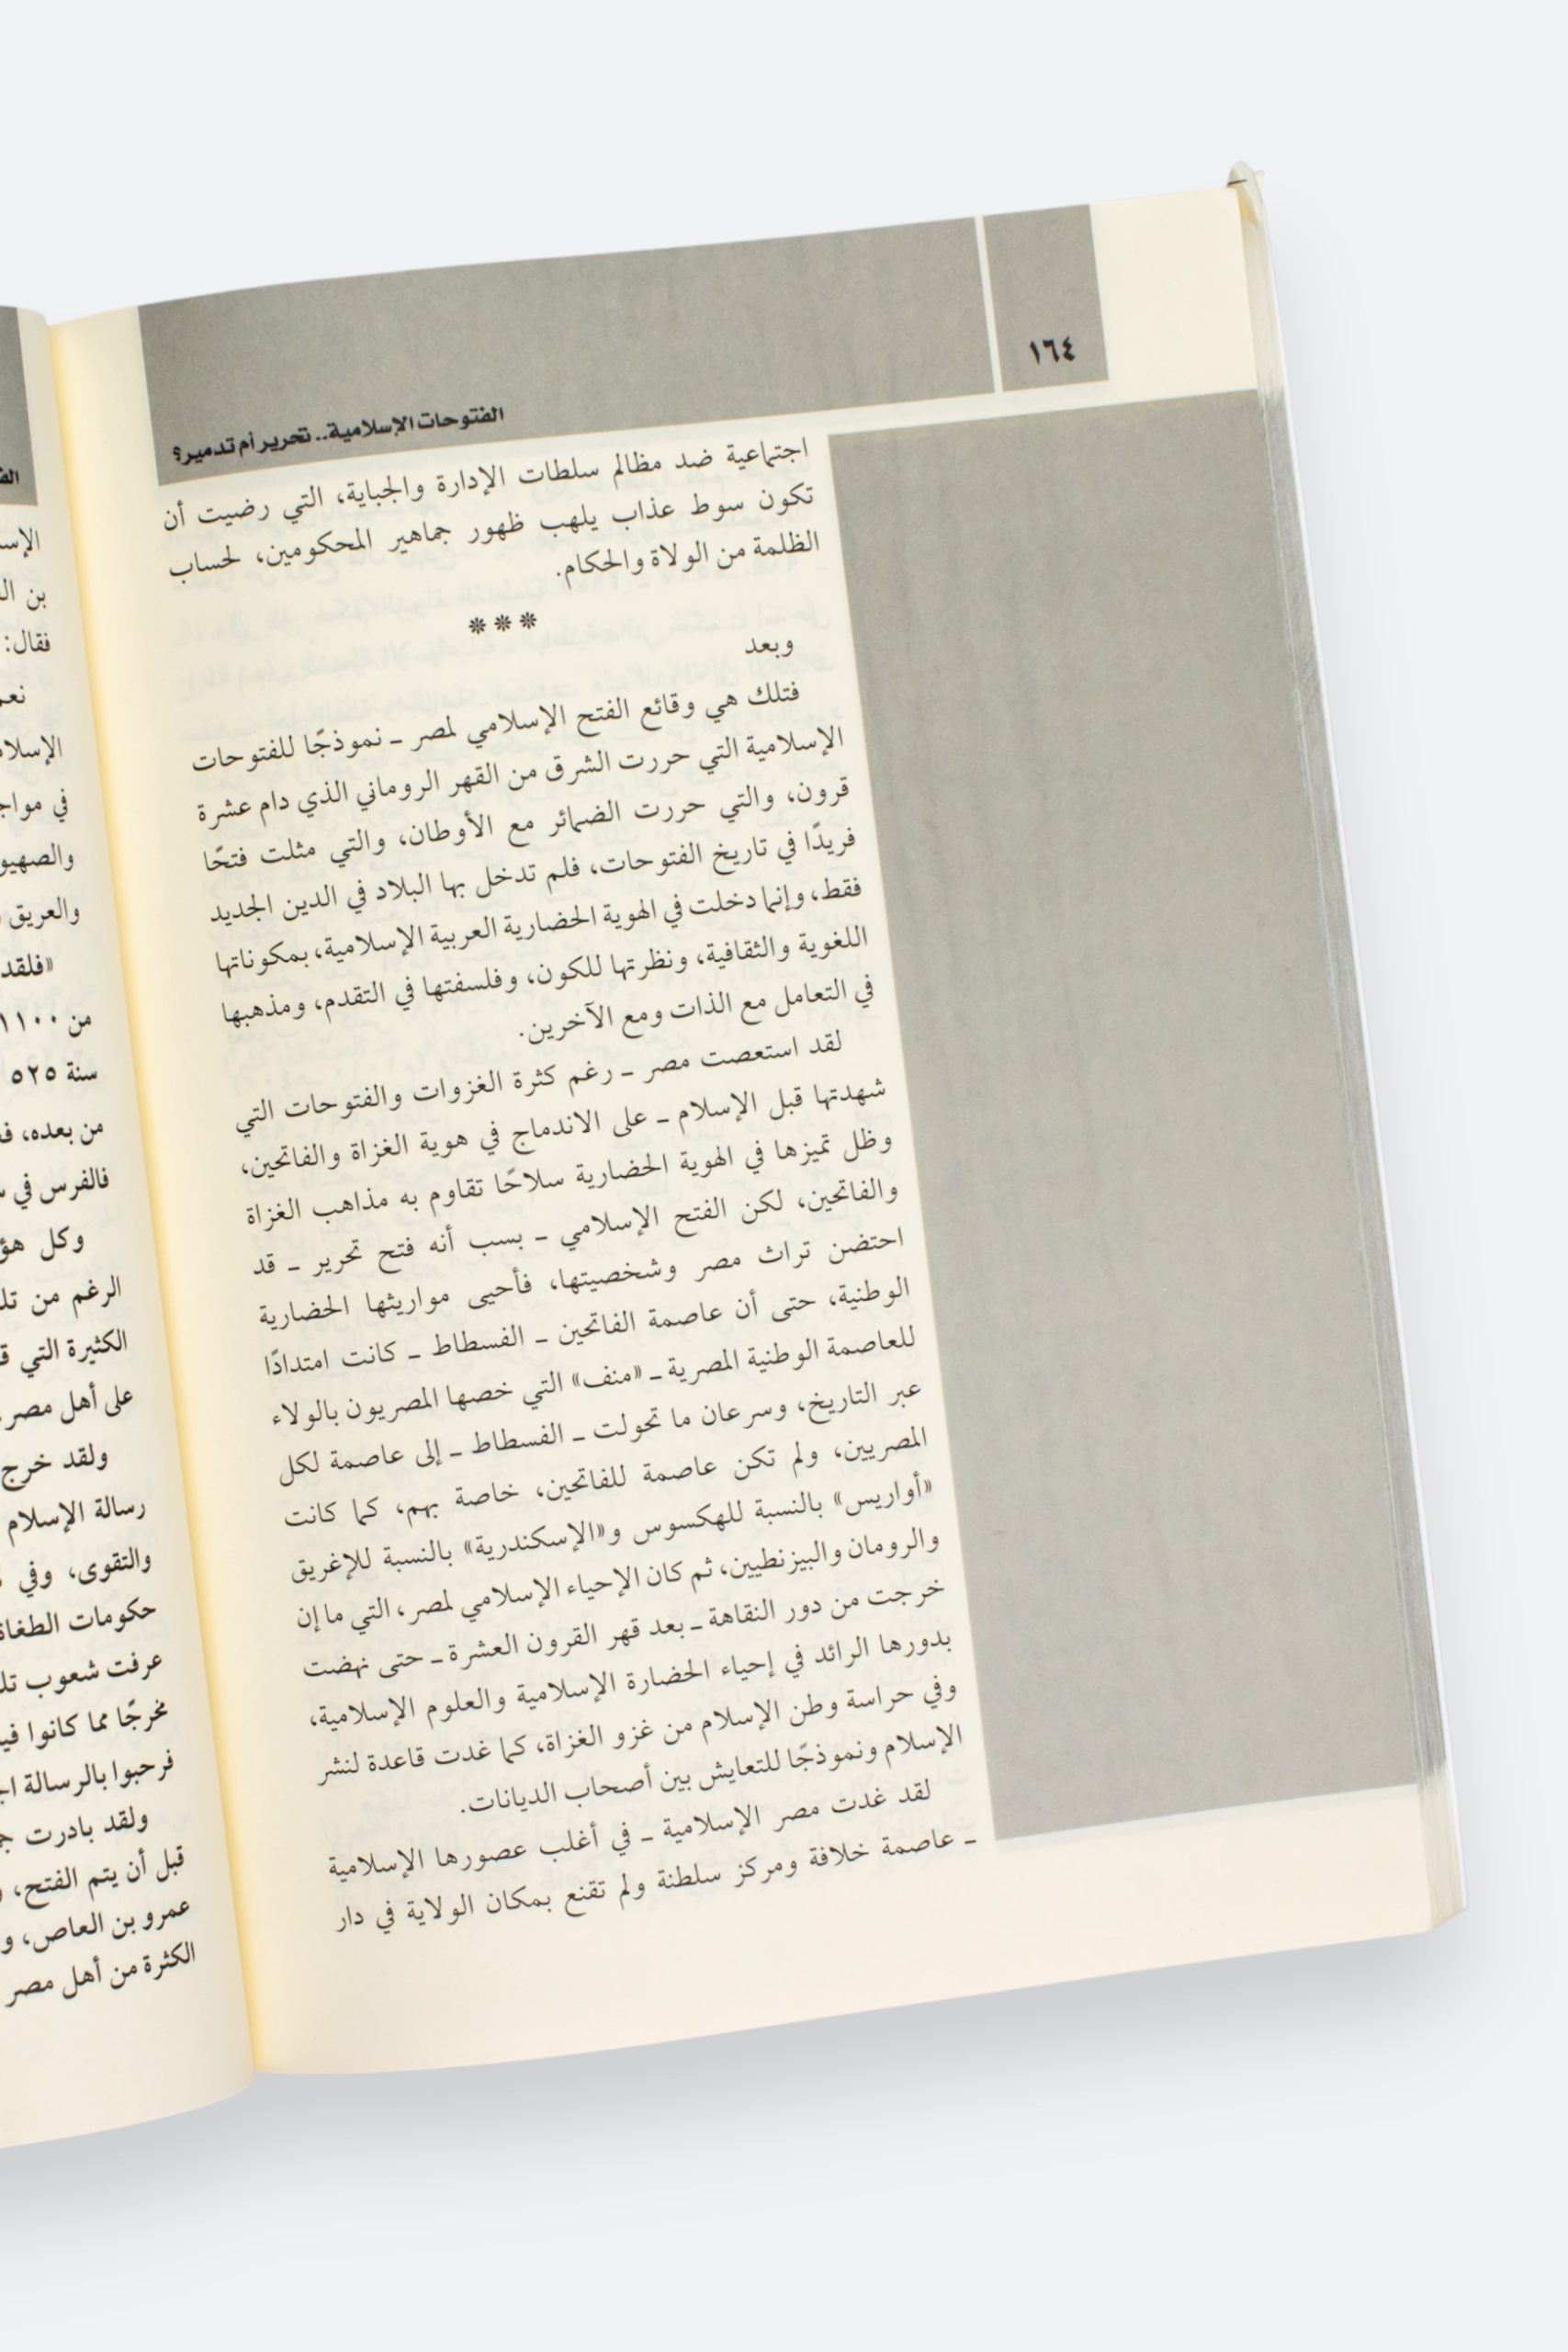 ١٦٤
الفتوحات الإسلامية.. تحرير أم تدمير؟
اجتماعية ضد مظالم سلطات الإدارة والجباية، التي رضيت أن
تكون سوط عذاب يلهب ظهور جماهير المحكومين، لحساب
الظلمة من الولاة والحكام.
***
وبعد
فتلك هي وقائع الفتح الإسلامي لمصر ـ نموذجًا للفتوحات
الإسلامية التي حررت الشرق من القهر الروماني الذي دام عشرة
قرون، والتي حررت الضمائر مع الأوطان، والتي مثلت فتحًا
فريدًا في تاريخ الفتوحات، فلم تدخل بها البلاد في الدين الجديد
فقط، وإنما دخلت في الهوية الحضارية العربية الإسلامية، بمكوناتها
اللغوية والثقافية، ونظرتها للكون، وفلسفتها في التقدم، ومذهبها
في التعامل مع الذات ومع الآخرين.
لقد استعصت مصر ـ رغم كثرة الغزوات والفتوحات التي
شهدتها قبل الإسلام ـ على الاندماج في هوية الغزاة والفاتحين،
وظل تميزها في الهوية الحضارية سلاحًا تقاوم به مذاهب الغزاة
والفاتحين، لكن الفتح الإسلامي ـ بسب أنه فتح تحرير ـ قد
احتضن تراث مصر وشخصيتها، فأحيى مواريثها الحضارية
الوطنية، حتى أن عاصمة الفاتحين ـ الفسطاط ـ كانت امتدادًا
للعاصمة الوطنية المصرية ـ «منف» التي خصها المصريون بالولاء
عبر التاريخ، وسرعان ما تحولت ـ الفسطاط ـ إلى عاصمة لكل
المصريين، ولم تكن عاصمة للفاتحين، خاصة بهم، كما كانت
«أواريس» بالنسبة للهكسوس و«الإسكندرية» بالنسبة للإغريق
والرومان والبيزنطيين، ثم كان الإحياء الإسلامي لمصر، التي ما إن
خرجت من دور النقاهة ـ بعد قهر القرون العشرة ـ حتى نهضت
بدورها الرائد في إحياء الحضارة الإسلامية والعلوم الإسلامية،
وفي حراسة وطن الإسلام من غزو الغزاة، كما غدت قاعدة لنشر
الإسلام ونموذجًا للتعايش بين أصحاب الديانات.
لقد غدت مصر الإسلامية ـ في أغلب عصورها الإسلامية
ـ عاصمة خلافة ومركز سلطنة ولم تقنع بمكان الولاية في دار
بن
فقال:
في
من ١١٠٠
سنة ٥٢٥
من بعده،
فالفرس في
وكل
الرغم من
الكثيرة التي
على أهل مصر
ولقد خرج
رسالة الإسلام
والتقوى، وفي
حكومات
عرفت شعوب
مخرجًا مما كانوا
فرحبوا بالرسالة
ولقد بادرت
قبل أن يتم الفتح،
عمرو بن العاص،
الكثرة من أهل مصر